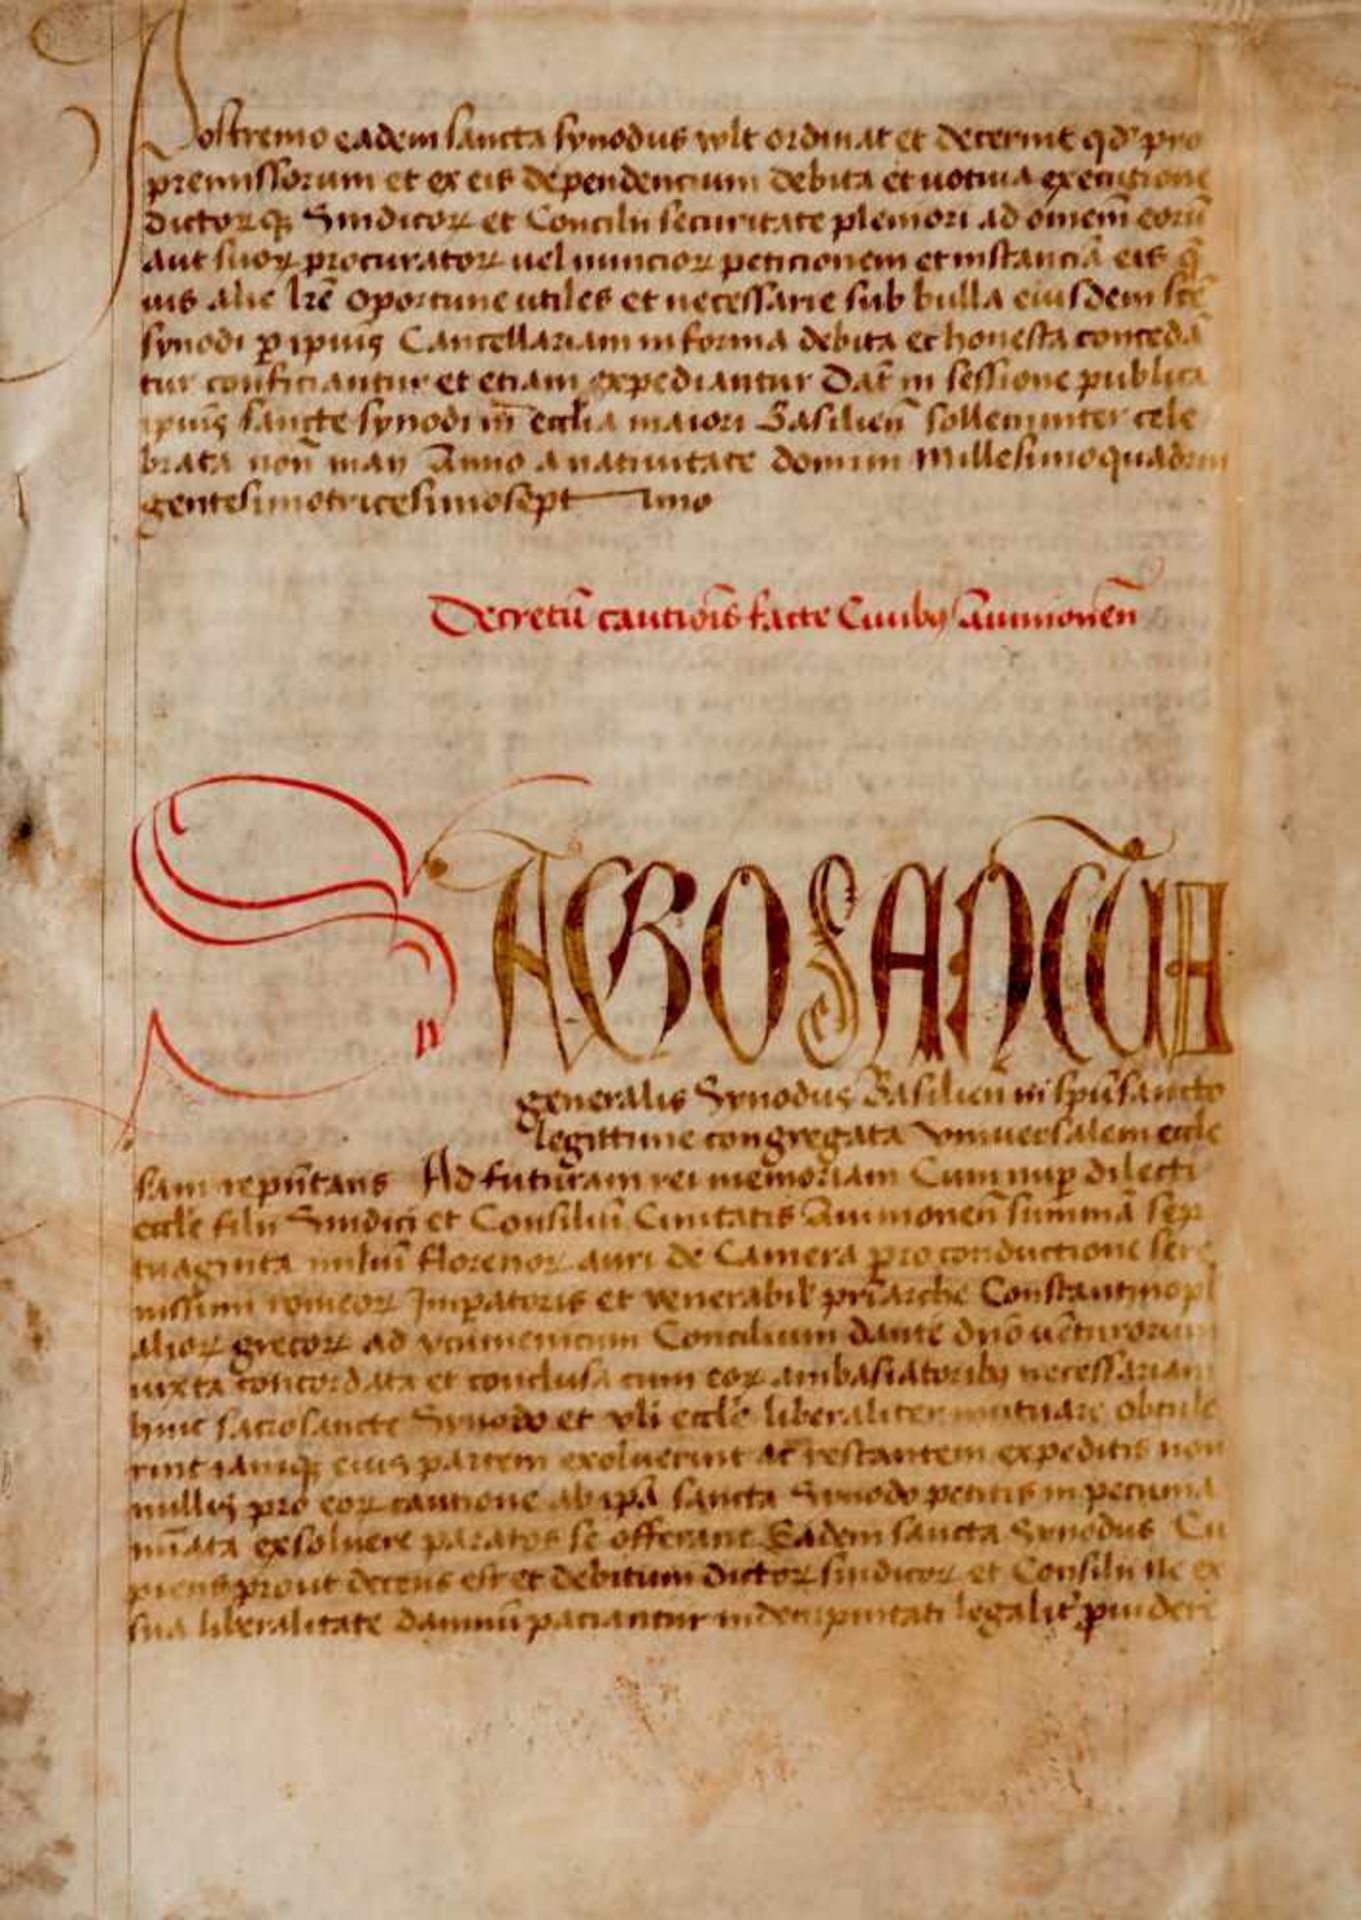 Postremo eadem sancta synodus vult ordinat et decernit qd' pro
premissorum et ex eis dependencium debita et votiua executione
dictorꝝqꝫ Sindicorꝝ et Concilii securitate pleniori ad omnem̄ eorū
aut suorꝝ procuratorꝝ uel nunciorꝝ peticionem et instanciā eis q̄
uis alie lr̄e oportune utiles et necessarie sub bulla eiusdem scē
synodi ꝑ ipiuꝰ Cancellariam in forma debita et honesta concedā
tur conficiantur et etiam expediantur Dat̄ in sessione publica
ipiuꝰ sancte synodi in ecclīa maiori Basilien̄ sollemniter cele
brata non̄ maii Anno a natiuitate domini Millesimoquadrin
gentesimotricesimosept imo
Decretū cautiōis facte Ciuibꝰ Auinionen̄
SACROSANCTA
generalis Synodus Basilien̄ in sp̄u sancto
legittime congregata vniuersalem eccle
siam rep̄ntans Ad futuram rei memoriam Cum nuꝑ dilecti
eccl̄e filii Sindici et Consiliū Ciuitatis Auinionen̄ summā sep
tuaginta miliū florenorꝝ auri de Camera pro conductione sere
nissimi romeorꝝ Imꝑatoris et venerabil' pri̅arche Constantinopl
aliorꝝ grecorꝝ ad ycumenicum Concilium dante dn̄o uēturorum
iuxta concordata et conclusa cum eorꝝ ambasiatoribꝰ necessariam
huic sacrosancte Synodo et vl̄i eccl̄e liberaliter mutuare obtule
rint iamqꝫ eiuꝰ partem exoluerint ac restantem expeditis non
nullis pro eorꝝ cautione ab ip̄a sancta Synodo petitis in pecunia
nūata exsoluere paratos se offerant Eadem sancta Synodus Cu
piens prout decens est et debitum dictorꝝ sindicorꝝ et Consilii ne ex
sua liberalitate damnū paciantur indempnitati legalit' ꝓuidere